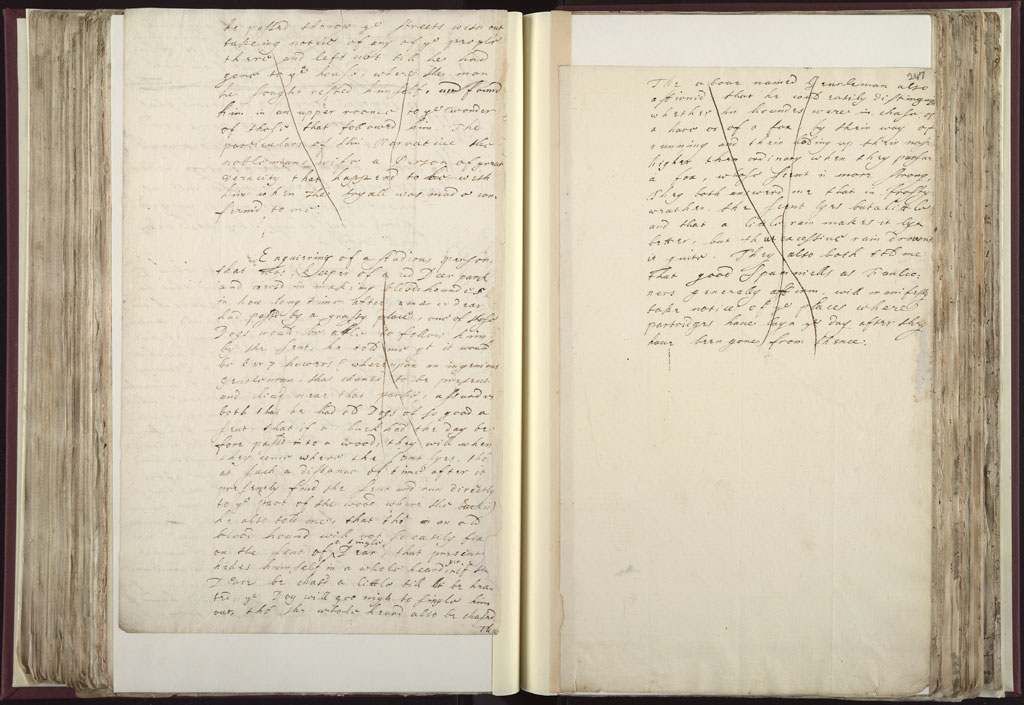 he passed thorow yᵉ streets without
takeing notice of any of yᵉ people
there and left not till he had
gone to yᵉ house where the man
he sought rested himself, and found
him in an upper roome to yᵉ wonder
of those that followed him. The
particulars of this Narrative the
noblemans wife a Person of great
veracity that happend to be with
him when the tryall was made con
firmd to me.
Enquireing of a studious person,
that was keeper of a red Deer park
and versd in makeing bloodhounds
in how long time after, a man or dear
had passd by a grassy place, one of those
Dogs would be able to follow him
by the sent, he told me yᵗ it would
be very howers: whereupon an ingenious
gentleman, that chancd to be present
and livd near that park, assurd us
both that he had old Dogs of so good a
sent, that if a buck had the day be
fore passt into a wood, they will when
they come where the sent lyes, tho
at such a distance of time after it
presently find the sent and run directly
to yᵉ part of the wood where the buck is
he also told me, that tho an old
blood hound will not so easily fix
on the sent of a single Dear, that presently
hides himself in a whole heard, yet if the
Deare be chasd a little till he be hea-
ted, yᵉ Dog will goe nigh to single him
out, tho the whole heard also be chased
The
247
The above named Gentleman also
affirmd that he could easily distinguish
whether his hounds were in chase of
a hare or of a fox by their way of
running and their holding up their noses
higher than ordinary when they pursue
a fox, whose scent is more strong.
They both answerd me that in frosty
weather, the sent lyes but a little
and that a little rain makes it lye
better, but that excessive rain drowns
it quite. They also both told me
that good Spanniells as Faulco-
ners generally affirm, will manifestly
take notice of yᵉ places where
partridges have layn yᵉ day after they
have been gone from thence.